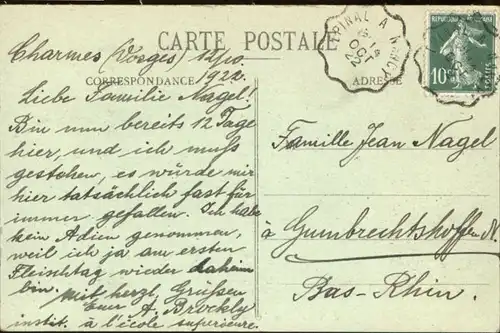 CARTE POSTALE
CORRESPONDANCE
ADRESSE
EPINAL A
OCT
22
REPUBLIQUE FRANCAISE
10
Charmes (Vosges) 12/10.
1922.
Liebe Familie Nagel!
Bin nun bereits 12 Tage
hier, und ich muß
gestehen, es würde mir
hier tatsächlich fast für
immer gefallen. Ich habe
kein Adieu genommen,
weil ich ja am ersten
Fleischtag wieder daheim
bin. Mit herzl. Grüßen
Euer A. Brockly
instit. à l'école supérieure.
Famille Jean Nagel
à Gumbrechtshoffen N
Bas-Rhin.